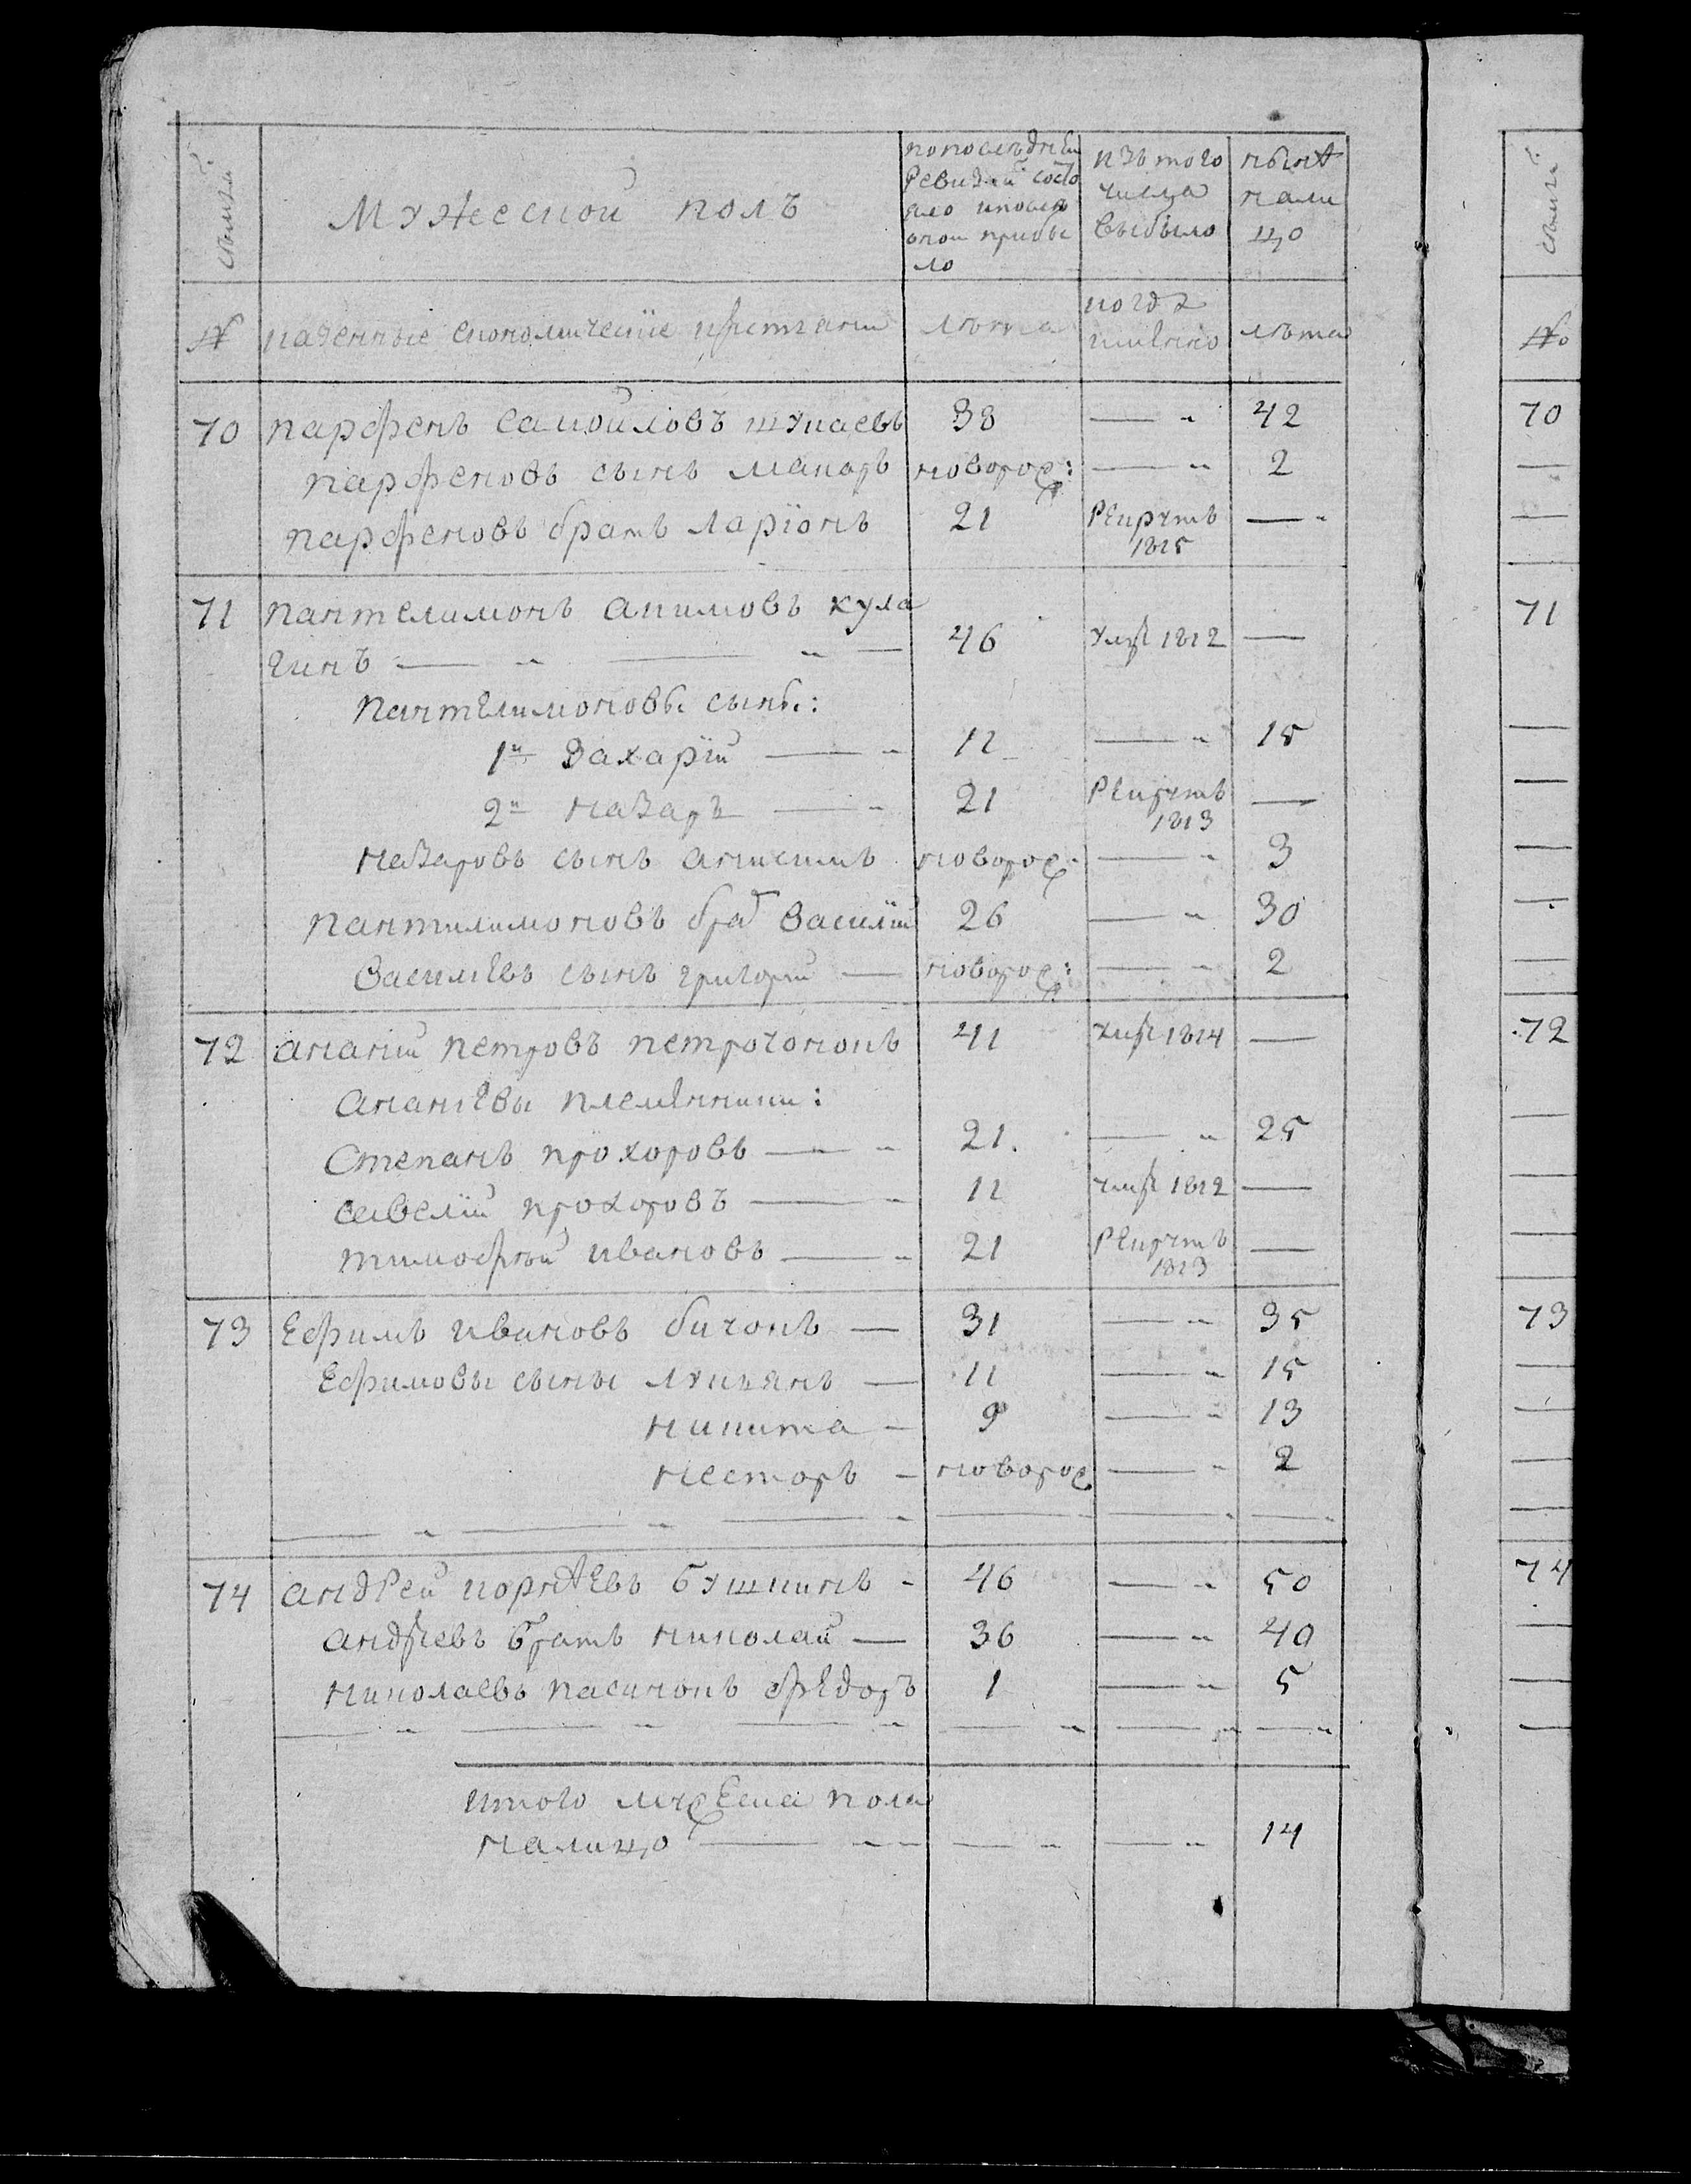 семьи
Мужеской полъ
по последней
Ревизiй состо
яло и после
оной прибы
ло
изъ того
числа
выбыло
нынѣ
на ли
цо
семьи
№ казенные економическiе крестьяне лѣта
когда
именно
лѣта
№
70 парфенъ самойловъ шукаевъ 38 — " 42 70
парфеновъ сынъ макаръ новорож: — " 2
парфеновъ братъ ларiонъ 21 Рекрутъ — "
1815
71 пантелимонъ акимовъ кула 71
гинъ — " — " — 46 умре 1812 —
пантелимоновы сыны:
1й Захарiй — " 11 — " 15
2й назаръ — " 21 Рекрутъ —
1813
назаровъ сынъ анисимъ новорож. — " 3
пантилимоновъ брат василiй 26 — " 30
Василiевъ сынъ григорiй — новорож: — " 2
72 ананiй петровъ петрочонокъ 41 умре 1814 — 72
ананiевы племянники:
Степанъ прохоровъ — " 21. — " 25
савелiй прохоровъ — " 11 умре 1812 —
тимофей ивановъ — " 21 Рекрутъ —
1813
73 Ефимъ ивановъ бичокъ — 31 — " 35 73
Ефимовы сыны лукьянъ — 11 — " 15
никита — 9 — " 13
несторъ — новорож — " 2
74 андрей корнѣевъ бушкинъ - 46 — " 50 74
андреевъ братъ николай — 36 — " 40
николаевъ пасинокъ федоръ 1 — " 5
итого мужеска пола
на лицо — " — " — " 14